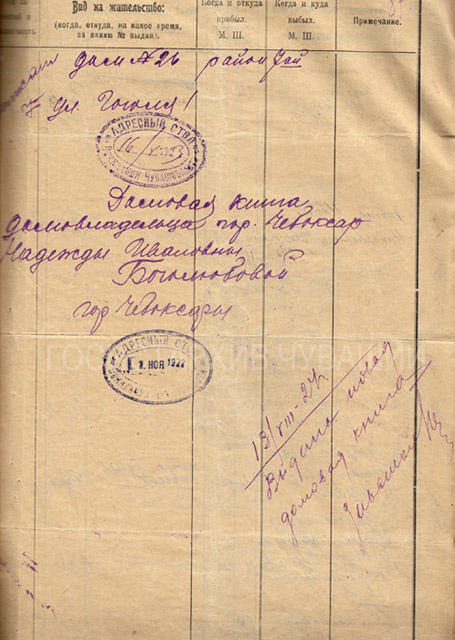 Вид на жительство:
(когда, откуда, на какое время, за каким № выдан).
Когда и откуда прибыл.
М. Ш.
Когда и куда выбыл.
М. Ш.
Примечание.
дом № 26 район
ул. Гоголя
АДРЕСНЫЙ СТОЛ
16/ 1923
Домовая книга
домовладельца гор. Чебоксар
Надежды Ивановны
Боголюбовой
гор Чебоксары
АДРЕСНЫЙ СТОЛ
НОЯ 192
13/VIII-27
Выдана новая
домовая книга